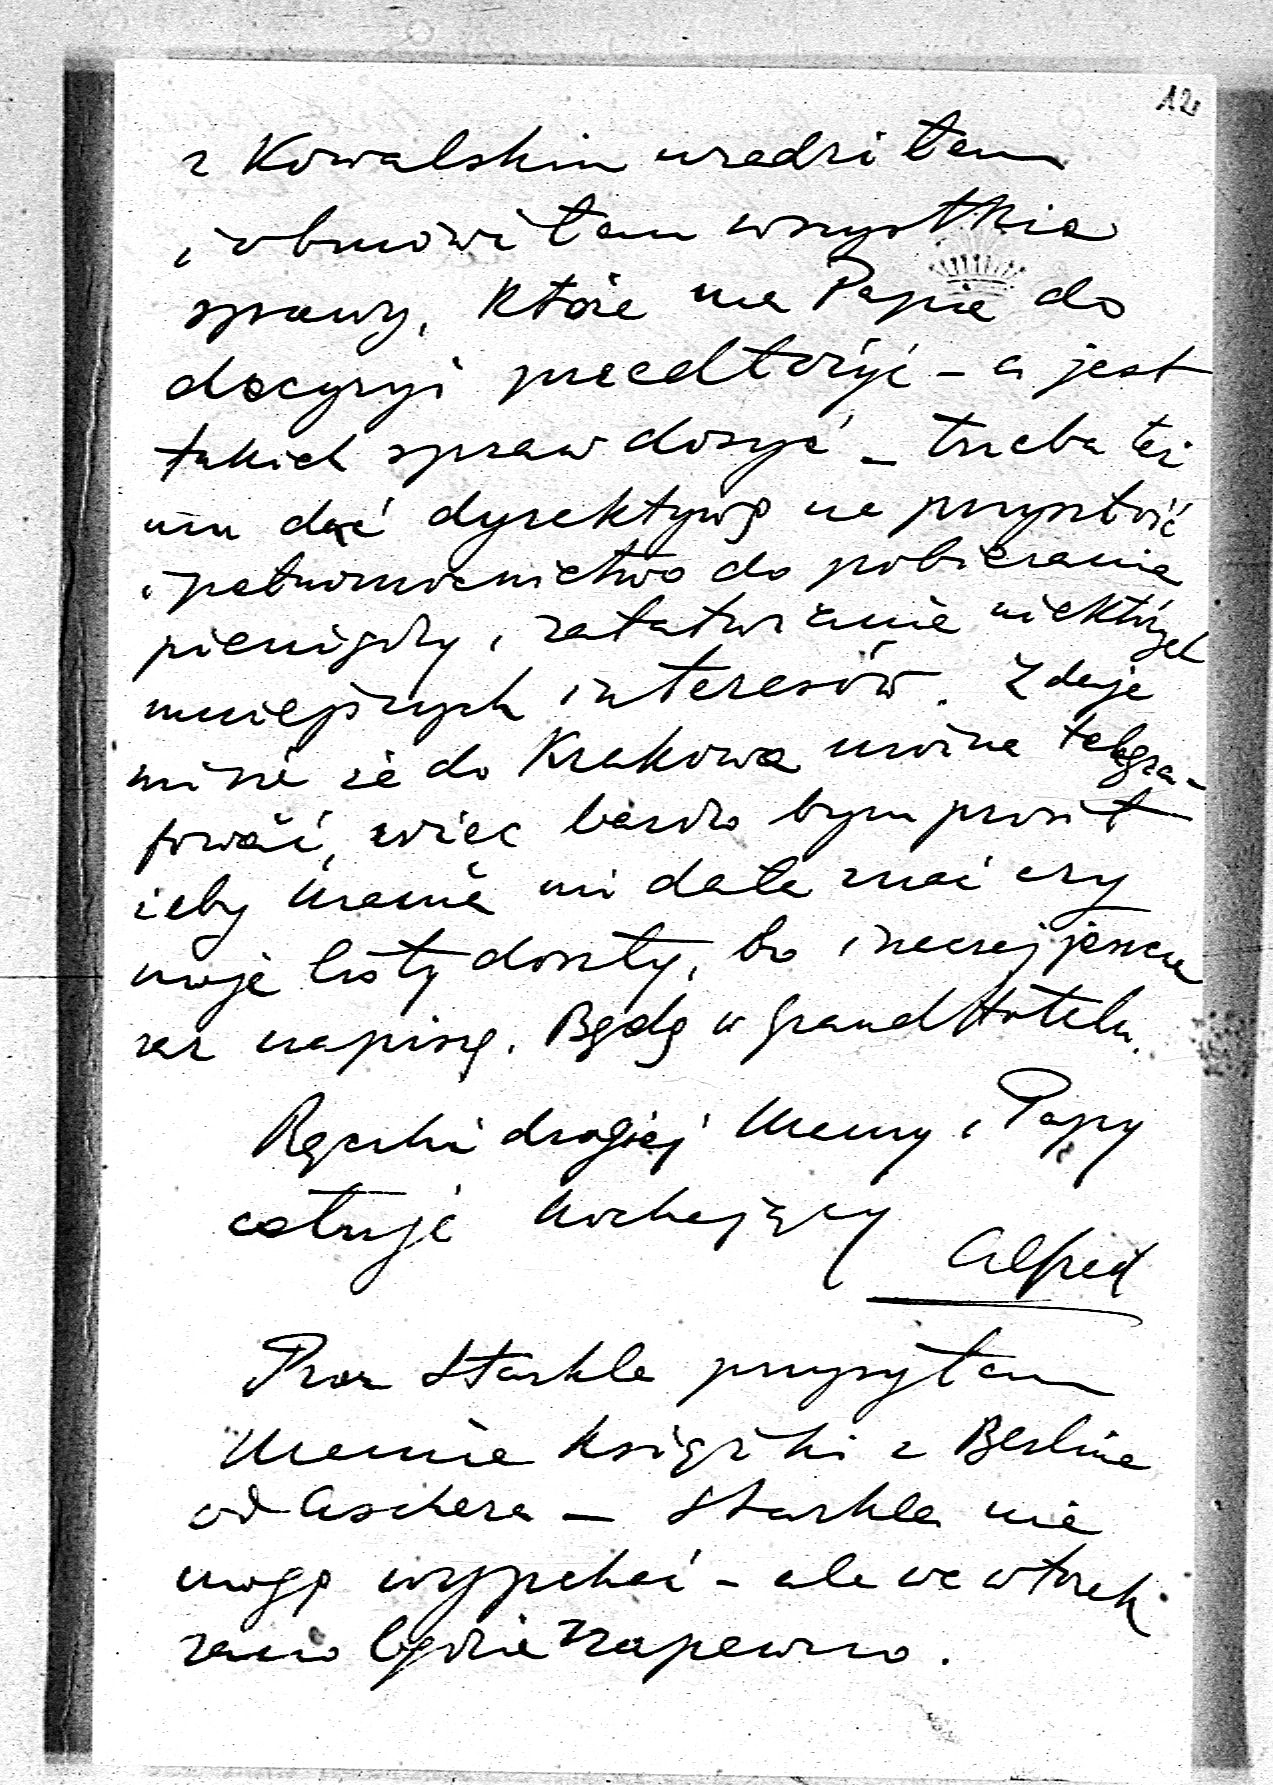 12
z Kowalskim uradziłam
i obmówiłam wszystkie
sprawy, które ma Papie do
decyzyi przedłożyć – a jest
takich spraw dosyć – trzeba też
mu dać dyrektywę na przyszłość
i pełnomocnictwo do pobierania
pieniędzy, załatwiania niektórych
mniejszych interesów. Zdaje
mi się że do Krakowa można telegra-
fować, więc bardzo bym prosił
żeby Mama mi dała znać czy
moje listy doszły, bo inaczej jeszcze
raz napiszę. Będę w Grand Hotelu.
Rączki drogiej Mamy i Papy
całuje kochający
Alfred
Przez Starkla przysyłam
Mamie książki z Berlina
od Aschera – Starkla nie
mogę wypchać – ale we wtorek
rano będzie zapewno.